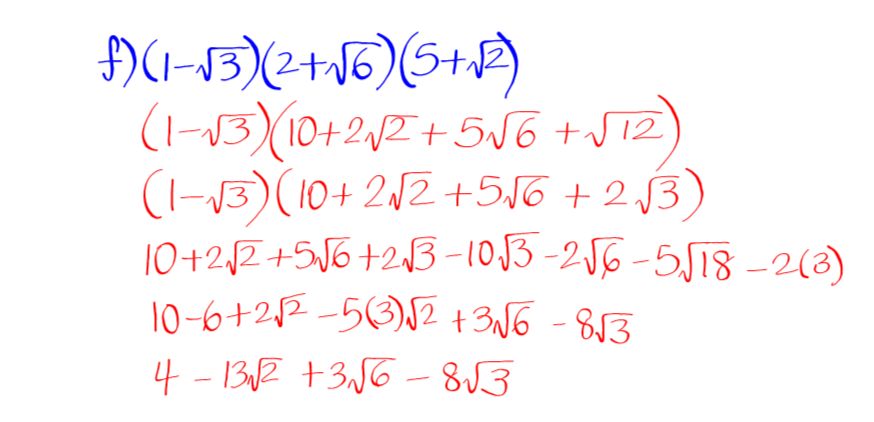 f) (1-√3)(2+√6)(5+√2)
(1-√3)(10+2√2+5√6+√12)
(1-√3)(10+2√2+5√6+2√3)
10+2√2+5√6+2√3-10√3-2√6-5√18-2(3)
10-6+2√2-5(3)√2+3√6-8√3
4-13√2+3√6-8√3